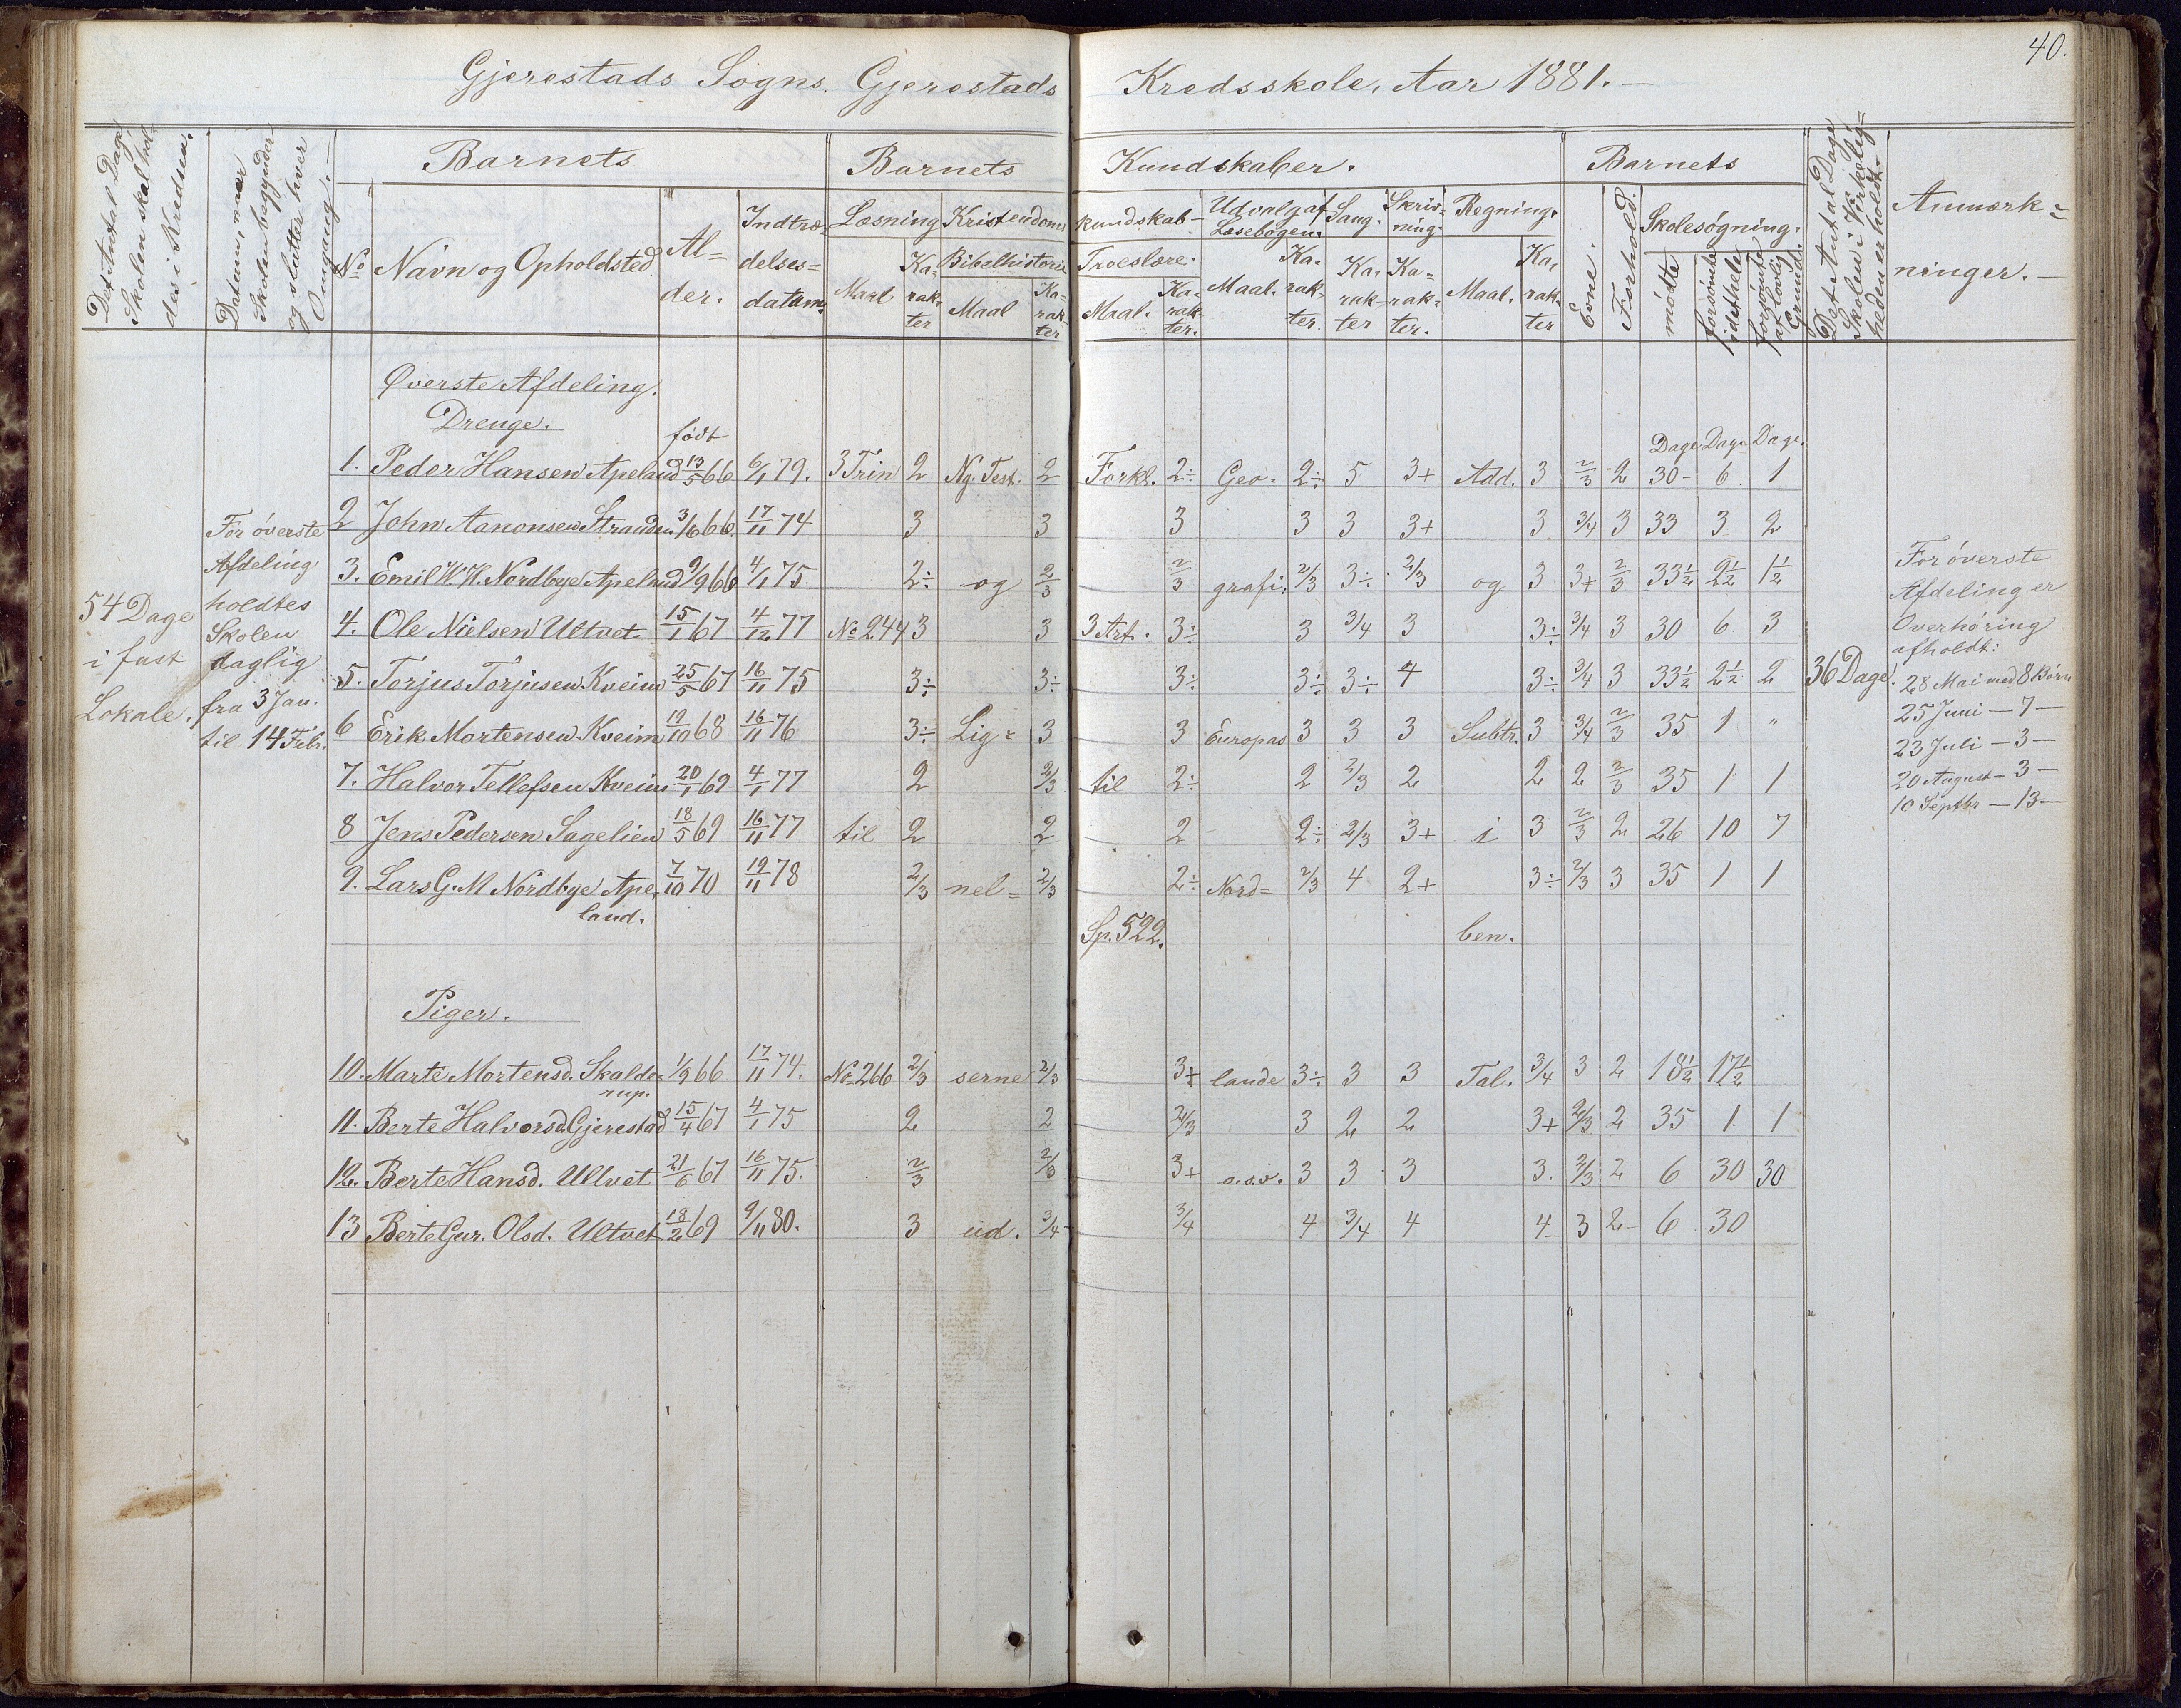 40.
Gjerestads Sogns. Gjerestads Kredsskole, Aar 1881.—
Det Antal Dage Skolen skal holdes i Kredsen.
Datum, naar Skolen begynder og slutter hver Omgang.—
Barnets
Barnets Kundskaber.
Barnets
Det Antal Dage Skolen i Virkelig=heden er holdt.
Anmærk=ninger.—
No
Navn og Opholdsted
Al=der.
Indtræ=delses=datum.
Læsning
Kristendoms kundskab
Udvalg af Læsebogen.
Sang.
Skriv=ning.
Regning.
Evne.
Forhold.
Skolesøgning.
Maal
Ka=rak=ter
Bibelhistorie
Maal
Ka=rak=ter
Troeslære.
Maal.
Ka=rak=ter.
Maal.
Ka=rak=ter.
Ka=rak=ter
Ka=rak=ter.
Maal.
Ka=rak=ter
mødte
forsømte idethele
forsømte af lovlig Grund.
Øverste Afdeling.
Drenge.
født
Dage Dage Dage.
1. Peder Hansen Apeland 13/5 66 6/1 79. 3 Trin 2 Ny. Test. 2 Forkl. 2÷ Geo= 2÷ 5 3+ Add. 3 2/3 2 30- 6 1
2 John Aanonsen Stranden 3/6 66. 17/11 74 3 3 3 3 3 3+ 3 3/4 3 33 3 2
3. Emil W. W. Nordbye Apelnd 9/9 66 4/1 75 2÷ og 2/3 2/3 grafi: 2/3 3÷ 2/3 og 3 3+ 2/3 33 1/2 2 1/2 1 1/2
4. Ole Nielsen Ultvet 15/1 67 4/12 77 No 244 3 3 3 Art. 3÷ 3 3/4 3 3÷ 3/4 3 30 6 3
5. Torjus Torjusen Kveim 25/5 67 16/11 75 3÷ 3÷ 3÷ 3÷ 3÷ 4 3÷ 3/4 3 33 1/2 2 1/2 2
6 Erik Mortensen Kveim 19/10 68 16/11 76 3÷ Lig= 3 3 Europas 3 3 3 Subtr. 3 3/4 2/3 35 1 "
7. Halvor Tellefsen Kveim 20/1 69 4/1 77 2 2/3 til 2÷ 2 2/3 2 2 2 2/3 35 1 1
8 Jens Pedersen Sagelien 18/5 69 16/11 77 til 2 2 2 2÷ 2/3 3+ i 3 2/3 2 26 10 7
9. Lars G. M Nordbye Ape= 7/10 70 19/11 78 2/3 nel= 2/3 2÷ Nord= 2/3 4 2+ 3÷ 2/3 3 35 1 1
land.
Sp. 522. ben.
Piger.
10. Marte Mortensd. Skalde= 1/9 66 17/11 74. No 266 2/3 serne 2/3 3+ lande 3÷ 3 3 Tal. 3/4 3 2 18 1/2 17 1/2
rup.
11. Berte Halvorsd. Gjerestad 15/4 67 4/1 75 2 2 2/3 3 2 2 3+ 2/3 2 35 1 1
12. Berte Hansd. Ultvet 21/6 67 16/11 75. 2/3 2/3 3+ o.s.v. 3 3 3 3. 2/3 2 6 30 30
13 Berte Gur. Olsd. Ultvet 18/2 69 9/11 80. 3 ud. 3/4 3/4 4 3/4 4 4 3 2 6 30
54 Dage
i fast
Lokale.
For øverste
Afdeling
holdtes
Skolen
daglig
fra 3 Jan.
til 14 Febr.
36 Dage.
For øverste
Afdeling er
Overhøring
afholdt:
28 Mai med 8 Børn
25 Juni — 7 —
23 Juli — 3 —
20 August — 3 —
10 Septbr — 13 —